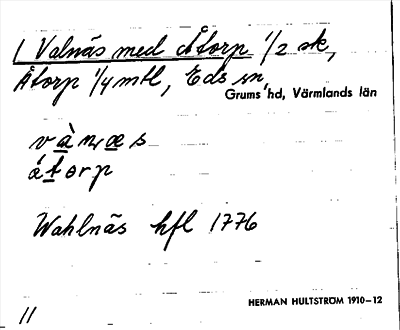 1 Valnäs med Åtorp 1/2 sk,
Åtorp 1/4 mtl, Eds sn,
Grums hd, Värmlands län
våtorp
Wahlnäs hfl 1776
HERMAN HULTSTRÖM 1910–12
11